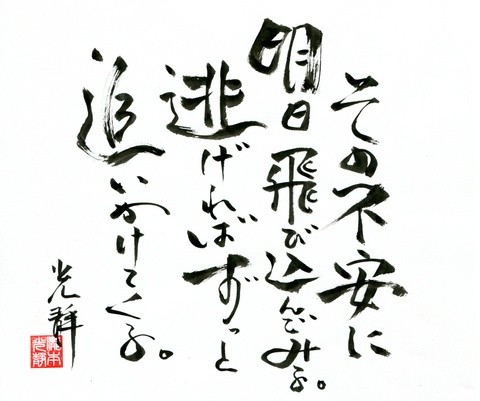 その不安に
明日飛び込んでみる。
逃げればずっと
追いかけてくる。
光静